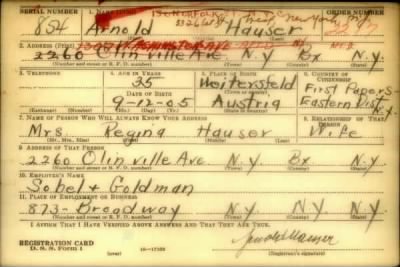 SERIAL NUMBER 1. NAME (Print) ORDER NUMBER
854 Arnold Hauser
2. ADDRESS (Print)
2260 Olinville Ave N.Y. Bx N.Y.
3. TELEPHONE 4. AGE IN YEARS 5. PLACE OF BIRTH 6. COUNTRY OF CITIZENSHIP
35 First Papers
DATE OF BIRTH Eastern Dist.
9-12-05 Austria N.Y.
7. NAME OF PERSON WHO WILL ALWAYS KNOW YOUR ADDRESS 8. RELATIONSHIP OF THAT PERSON
Mrs. Regina Hauser Wife
(Mr., Mrs., Miss) (First) (Middle) (Last)
9. ADDRESS OF THAT PERSON
2260 Olinville Ave. N.Y. Bx N.Y.
(Number and street or R. F. D. number) (Town) (County) (State)
10. EMPLOYER'S NAME
Sobel & Goldman
11. PLACE OF EMPLOYMENT OR BUSINESS
873- Broadway N.Y. N.Y. N.Y.
(Number and street or R. F. D. number) (Town) (County) (State)
I AFFIRM THAT I HAVE VERIFIED ABOVE ANSWERS AND THAT THEY ARE TRUE.
REGISTRATION CARD
D. S. S. Form 1
Arnold Hauser
(Registrant's signature)